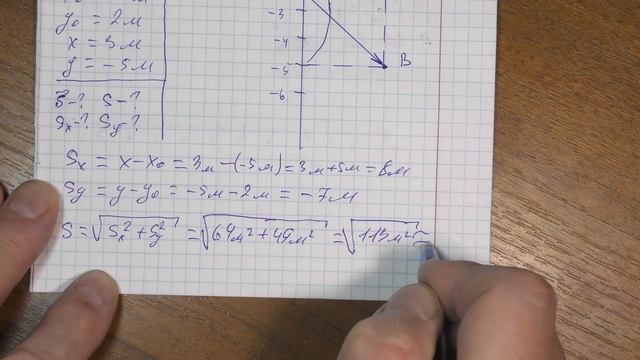 y₀ = 2м
x = 3м
y = −5м
S⃗ - ? S - ?
Sₓ - ? Sy - ?
-3
-4
-5
-6
B
Sₓ = x − x₀ = 3м − (−5м) = 3м + 5м = 8м
Sy = y − y₀ = −5м − 2м = −7м
S = √(Sₓ² + Sy²) = √(64м² + 49м²) = √(113м²) ≈